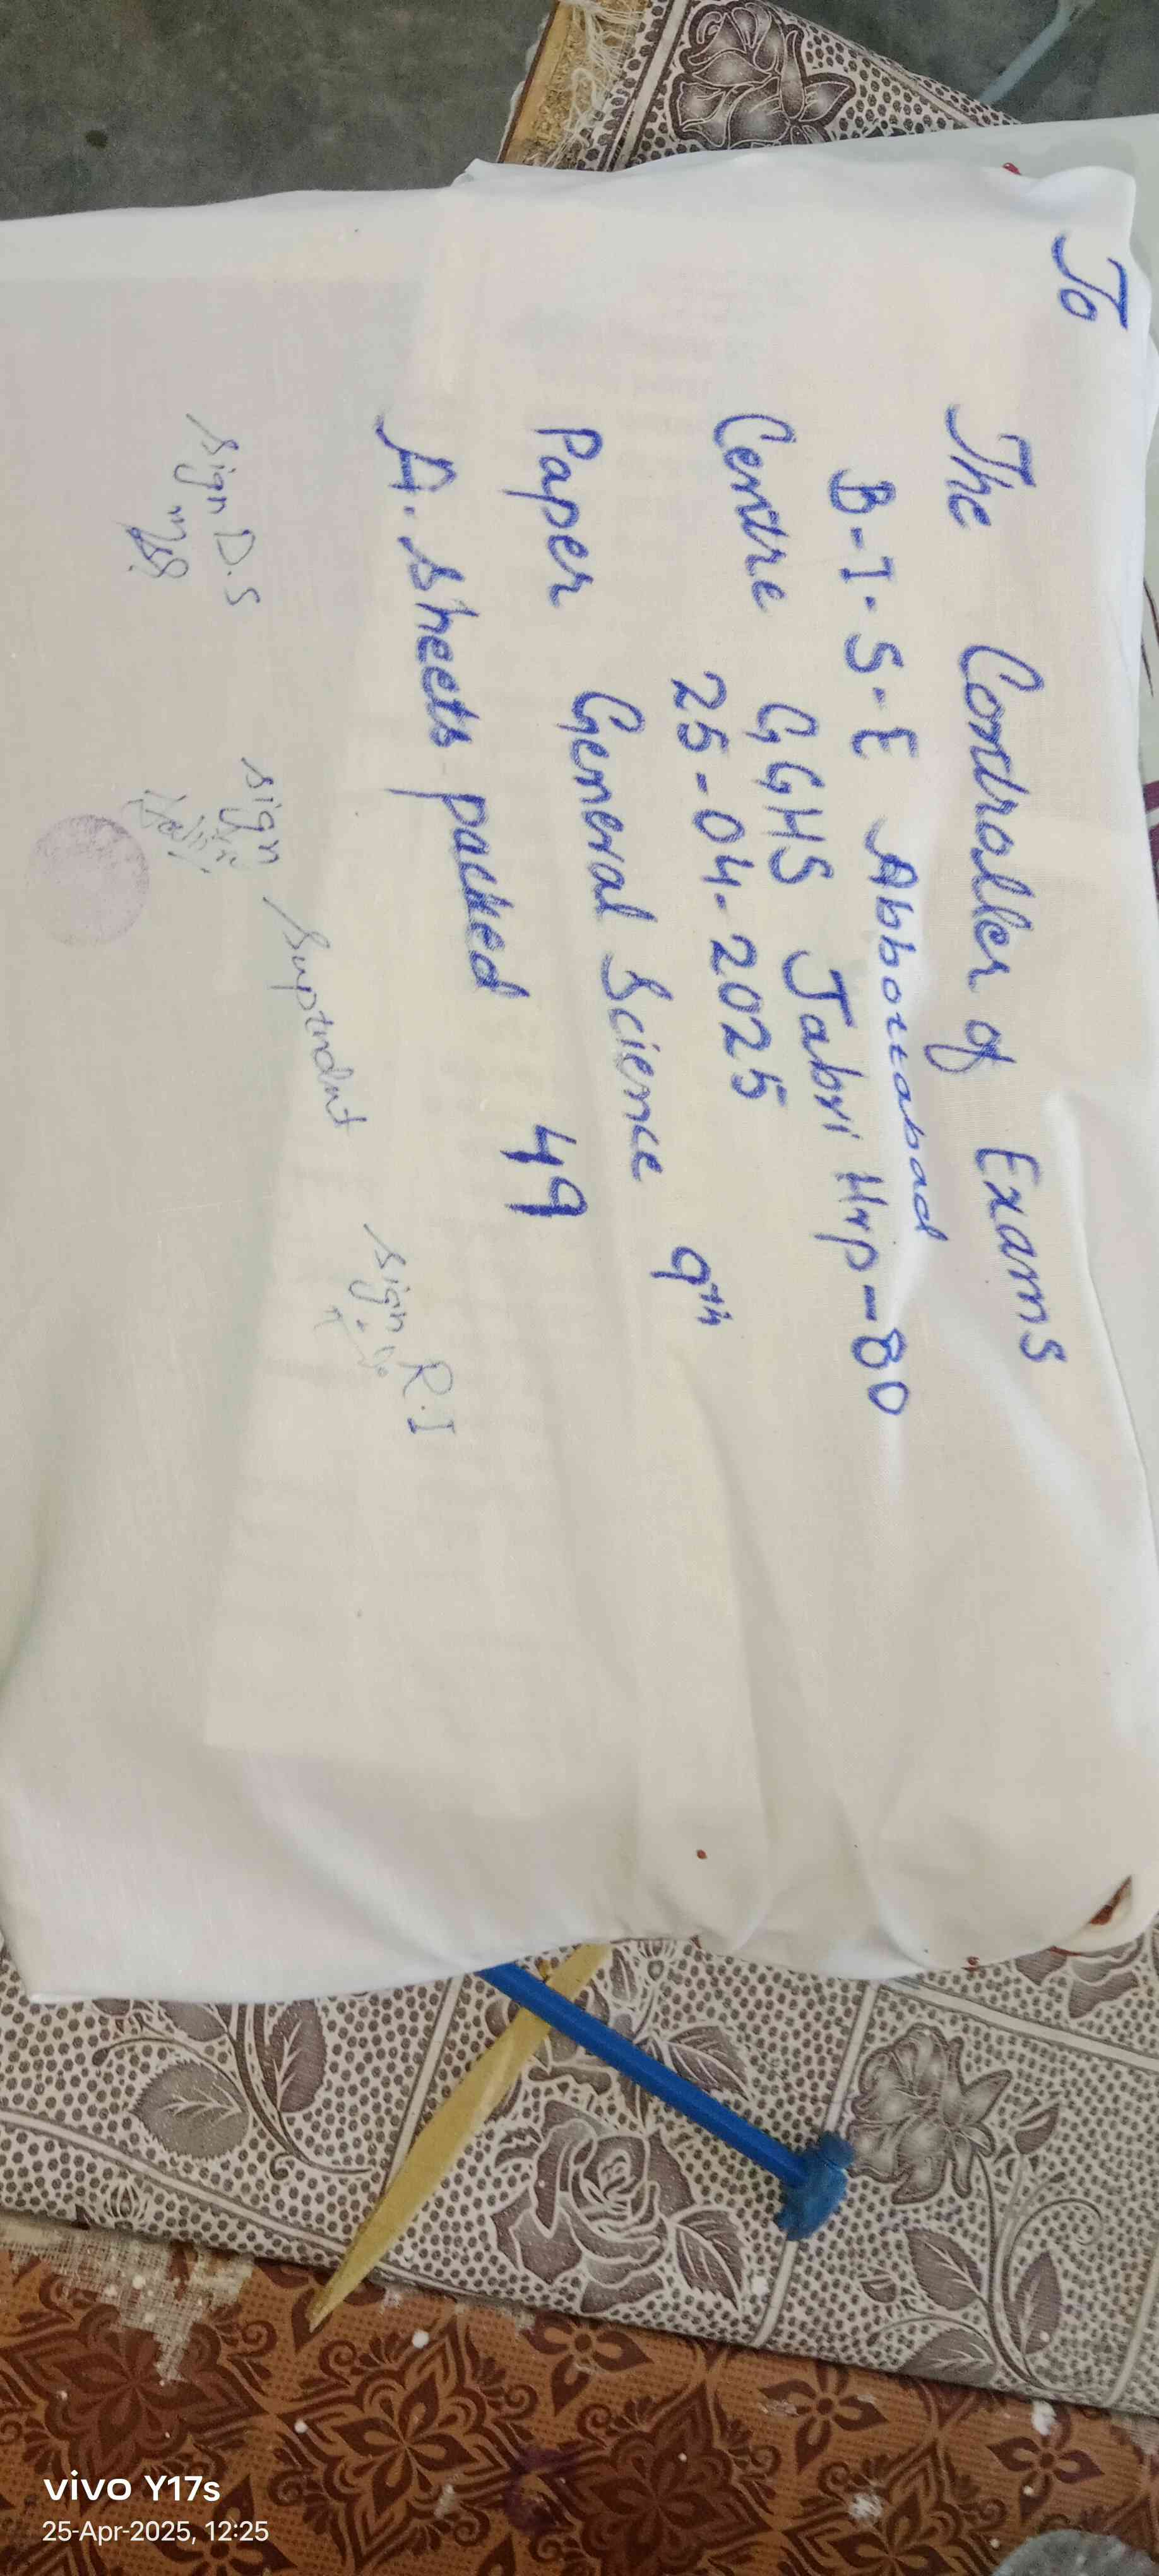 To
The Controller of Exams
B-I-S-E Abbottabad
Centre GGHS Jabri Hrp-80
25-04-2025
Paper General Science 9th
A. Sheets packed 49
Sign R.I
Sign Suptndnt
Sign D.S
vivo Y17s
25-Apr-2025, 12:25